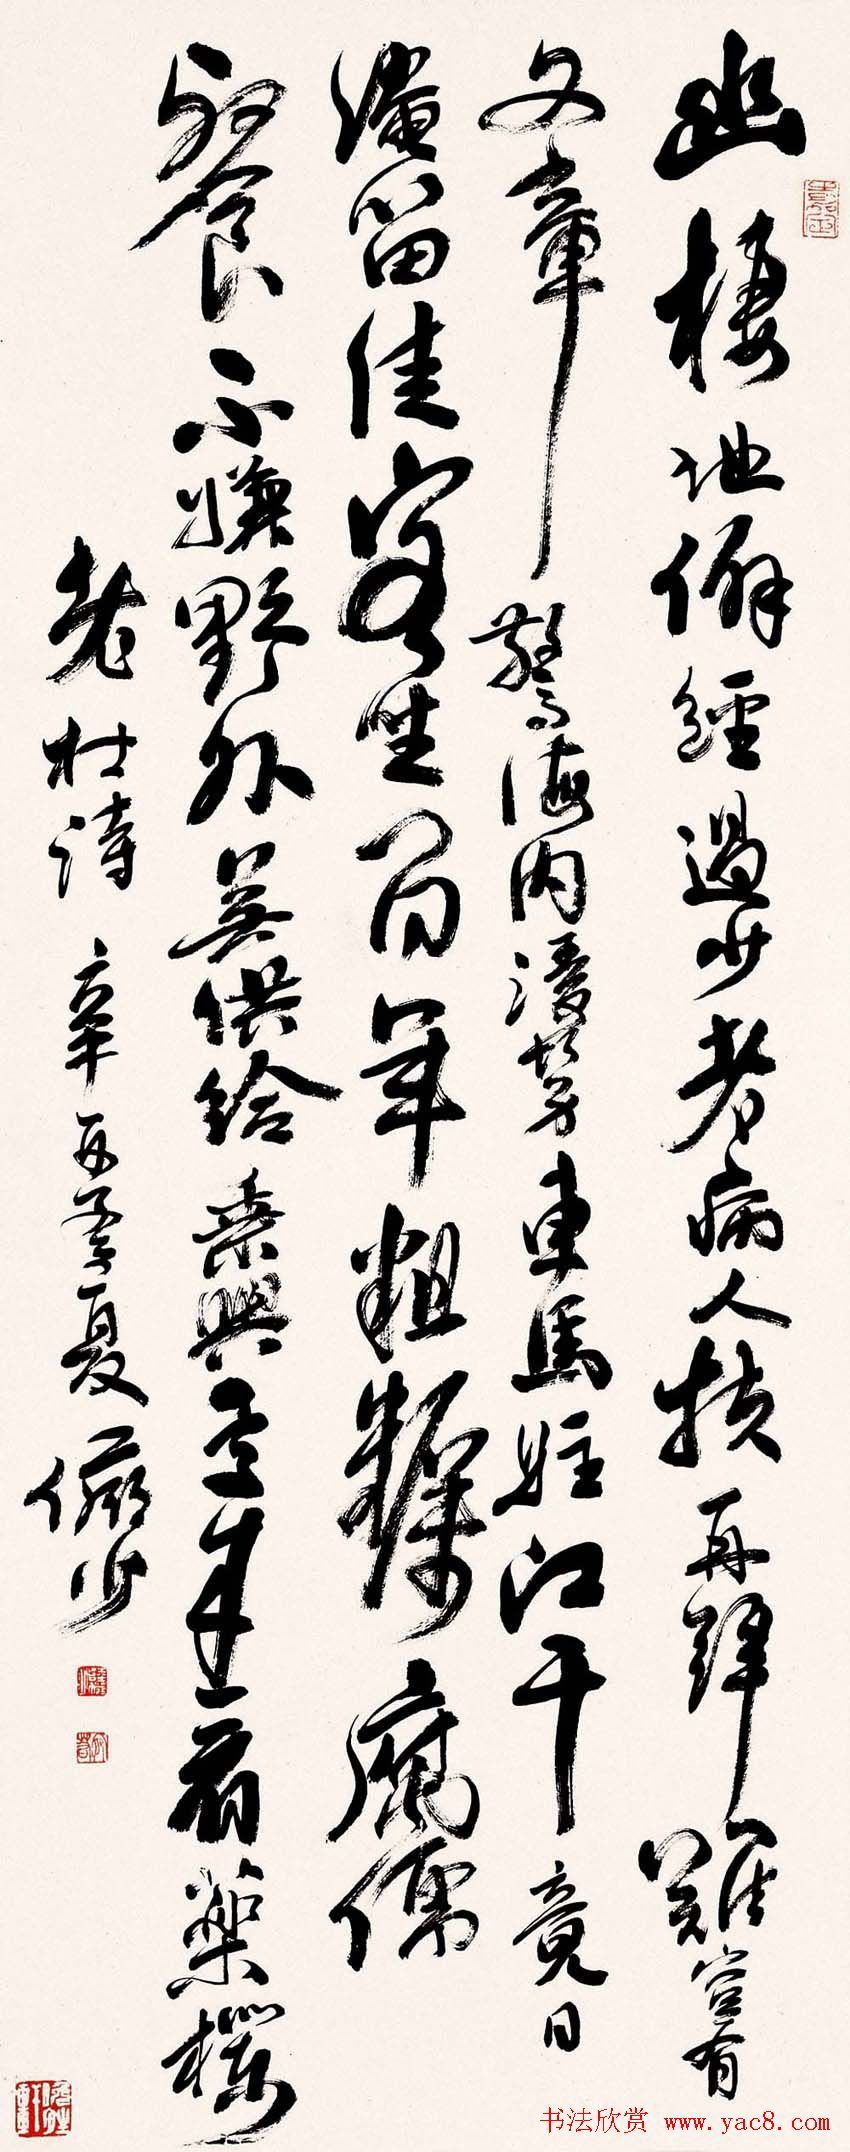 幽棲地僻經過少老病人扶再拜難豈有
文章驚海內漫勞車馬駐江干竟日
淹留佳客坐百年粗糲腐儒
餐不嫌野外無供給乘興還來看藥欄
老杜詩 辛酉季夏 儼少
书法欣赏 www.yac8.com